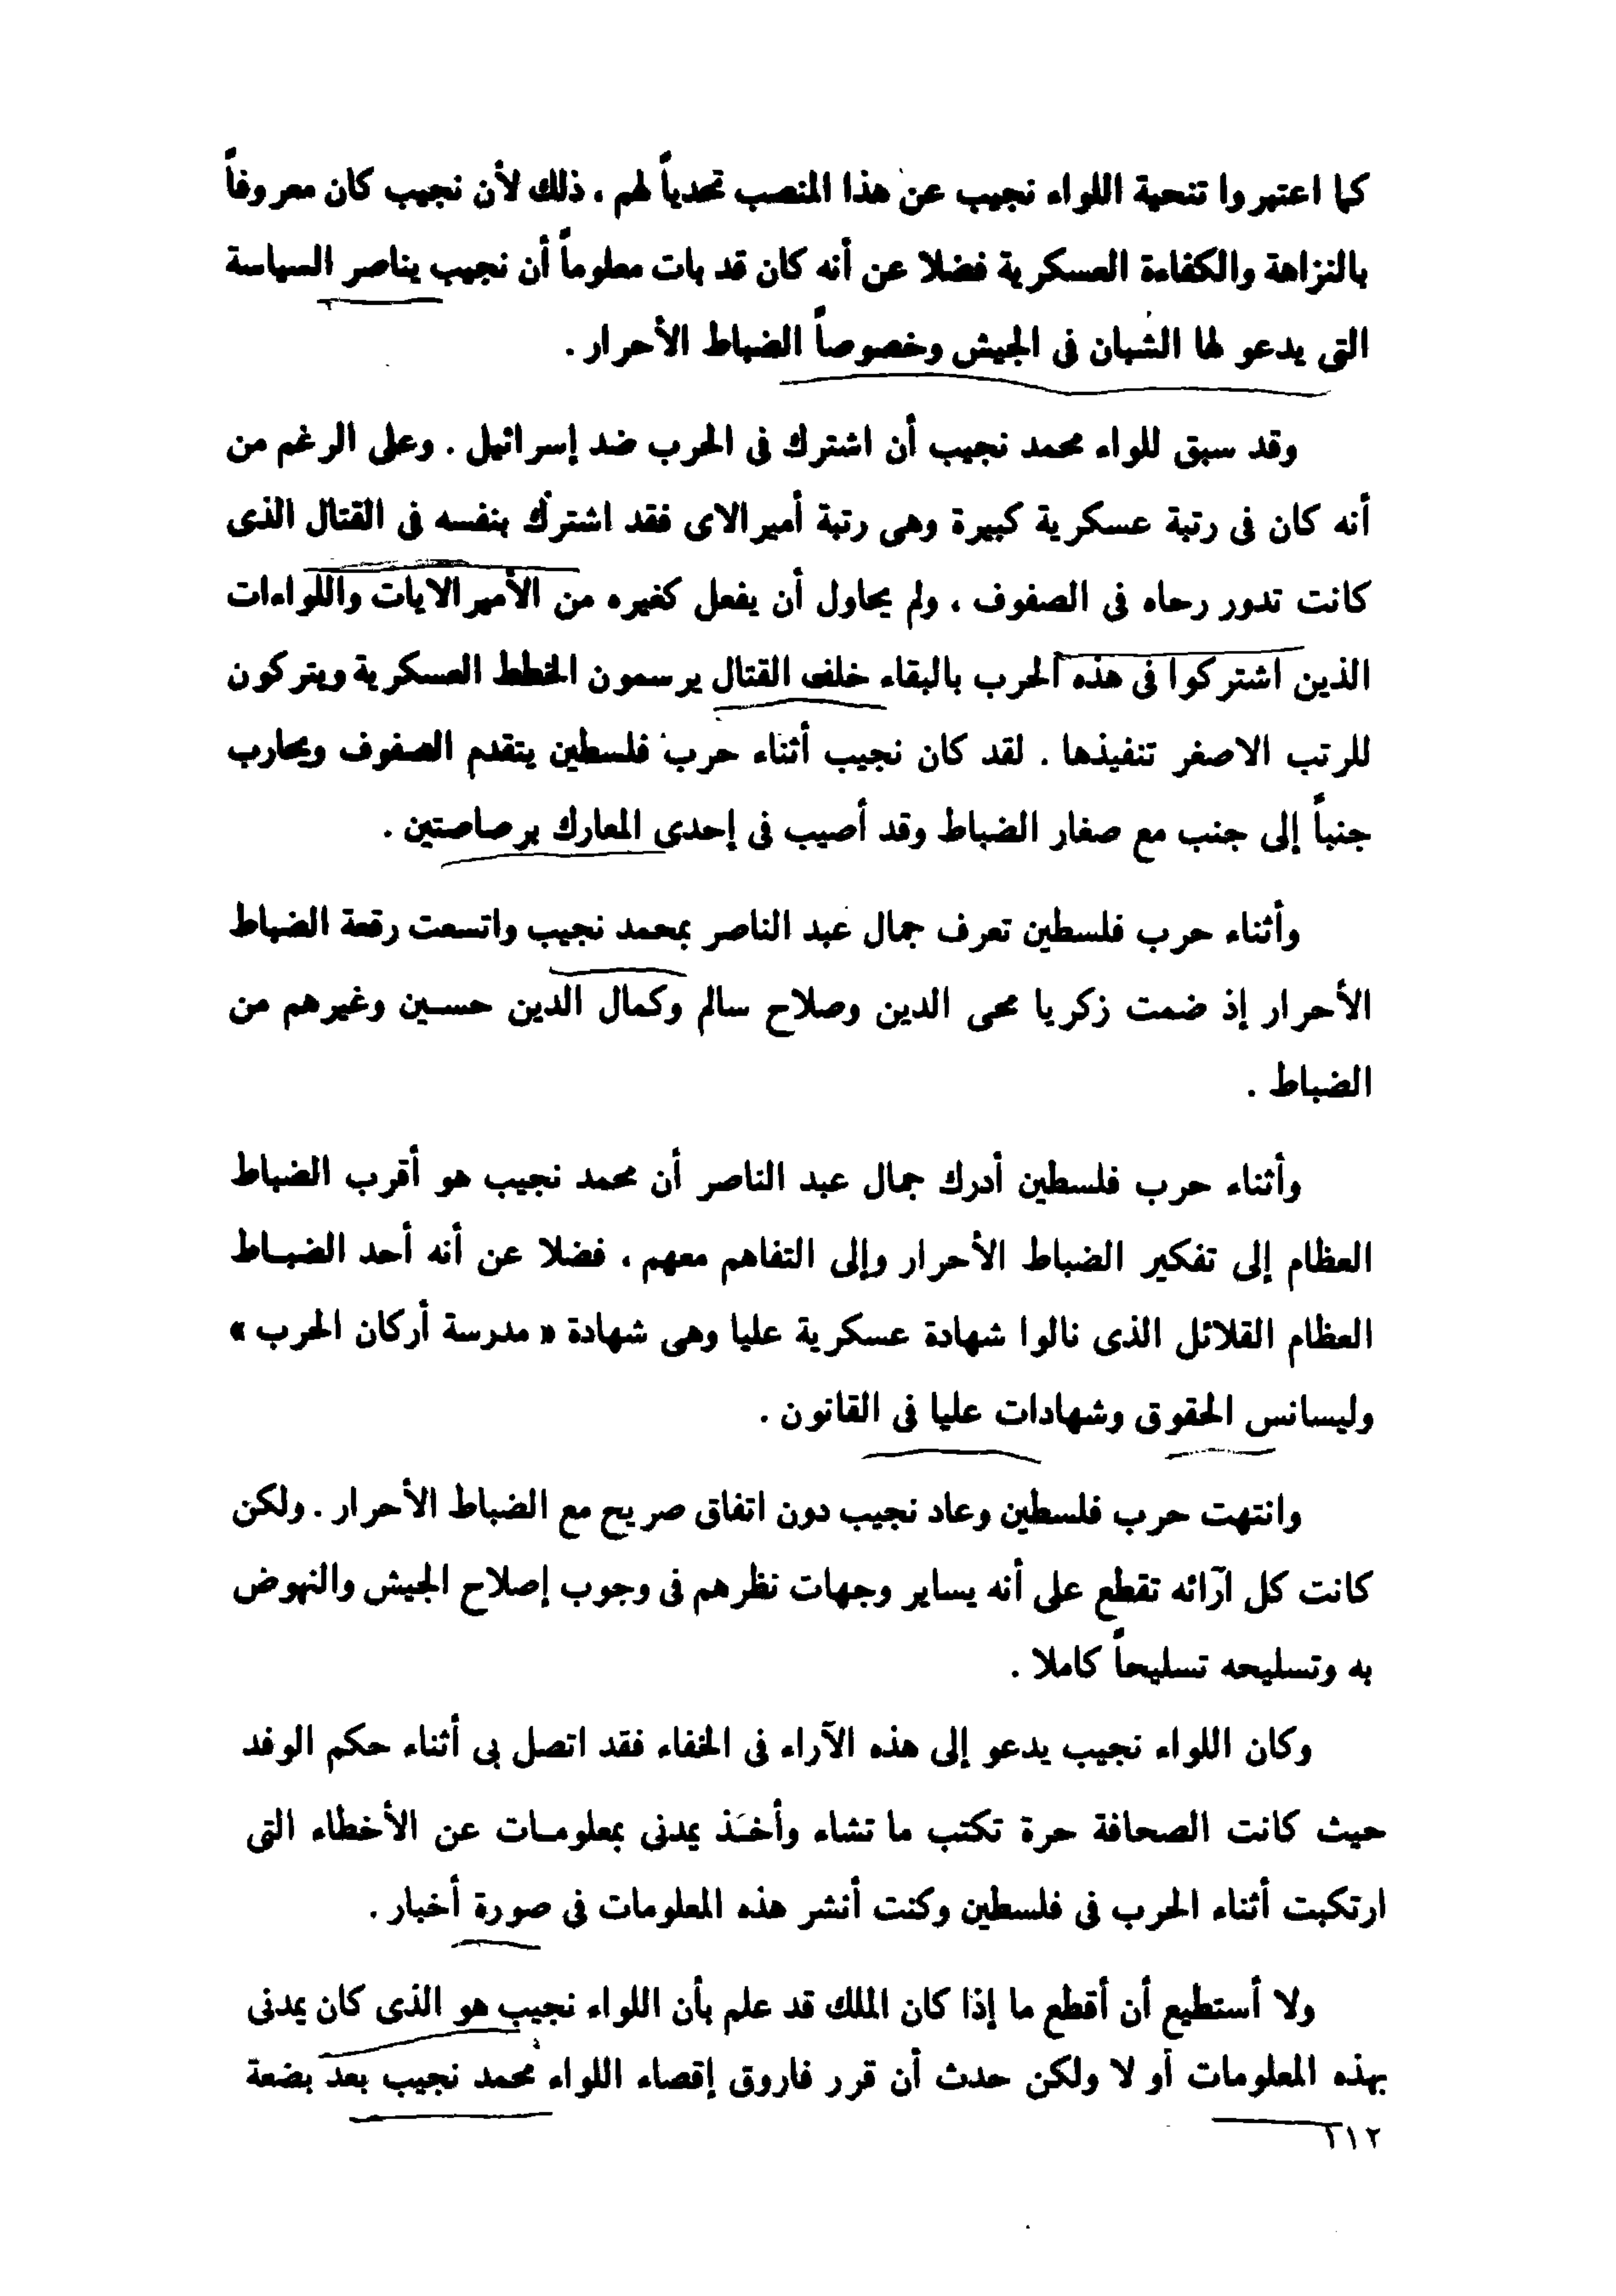 كما اعتبروا تنحية اللواء نجيب عن هذا المنصب تحدياً لهم ، ذلك لأن نجيب كان معروفاً
بالنزاهة والكفاءة العسكرية فضلا عن أنه كان قد بات معلوماً أن نجيب يناصر السياسة
التى يدعو لها الشبان فى الجيش وخصوصاً الضباط الأحرار .
وقد سبق للواء محمد نجيب أن اشترك فى الحرب ضد إسرائيل . وعلى الرغم من
أنه كان فى رتبة عسكرية كبيرة وهى رتبة أميرالاى فقد اشترك بنفسه فى القتال الذى
كانت تدور رحاه فى الصفوف ، ولم يحاول أن يفعل كغيره من الأميرالايات واللواءات
الذين اشتركوا فى هذه الحرب بالبقاء خلف القتال يرسمون الخطط العسكرية ويتركون
للرتب الاصغر تنفيذها . لقد كان نجيب أثناء حرب فلسطين يتقدم الصفوف ويحارب
جنباً إلى جنب مع صغار الضباط وقد أصيب فى إحدى المعارك برصاصتين .
وأثناء حرب فلسطين تعرف جمال عبد الناصر بمحمد نجيب واتسعت رقعة الضباط
الأحرار إذ ضمت زكريا محى الدين وصلاح سالم وكمال الدين حسين وغيرهم من
الضباط .
وأثناء حرب فلسطين أدرك جمال عبد الناصر أن محمد نجيب هو أقرب الضباط
العظام إلى تفكير الضباط الأحرار وإلى التفاهم معهم ، فضلا عن أنه أحد الضباط
العظام القلائل الذى نالوا شهادة عسكرية عليا وهى شهادة « مدرسة أركان الحرب »
وليسانس الحقوق وشهادات عليا فى القانون .
وانتهت حرب فلسطين وعاد نجيب دون اتفاق صريح مع الضباط الأحرار . ولكن
كانت كل آرائه تقطع على أنه يساير وجهات نظرهم فى وجوب إصلاح الجيش والنهوض
به وتسليحه تسليحاً كاملا .
وكان اللواء نجيب يدعو إلى هذه الآراء فى الخفاء فقد اتصل بى أثناء حكم الوفد
حيث كانت الصحافة حرة تكتب ما تشاء وأخذ يمدنى بمعلومات عن الأخطاء التى
ارتكبت أثناء الحرب فى فلسطين وكنت أنشر هذه المعلومات فى صورة أخبار .
ولا أستطيع أن أقطع ما إذا كان الملك قد علم بأن اللواء نجيب هو الذى كان يمدنى
بهذه المعلومات أو لا ولكن حدث أن قرر فاروق إقصاء اللواء محمد نجيب بعد بضعة
٢١٢